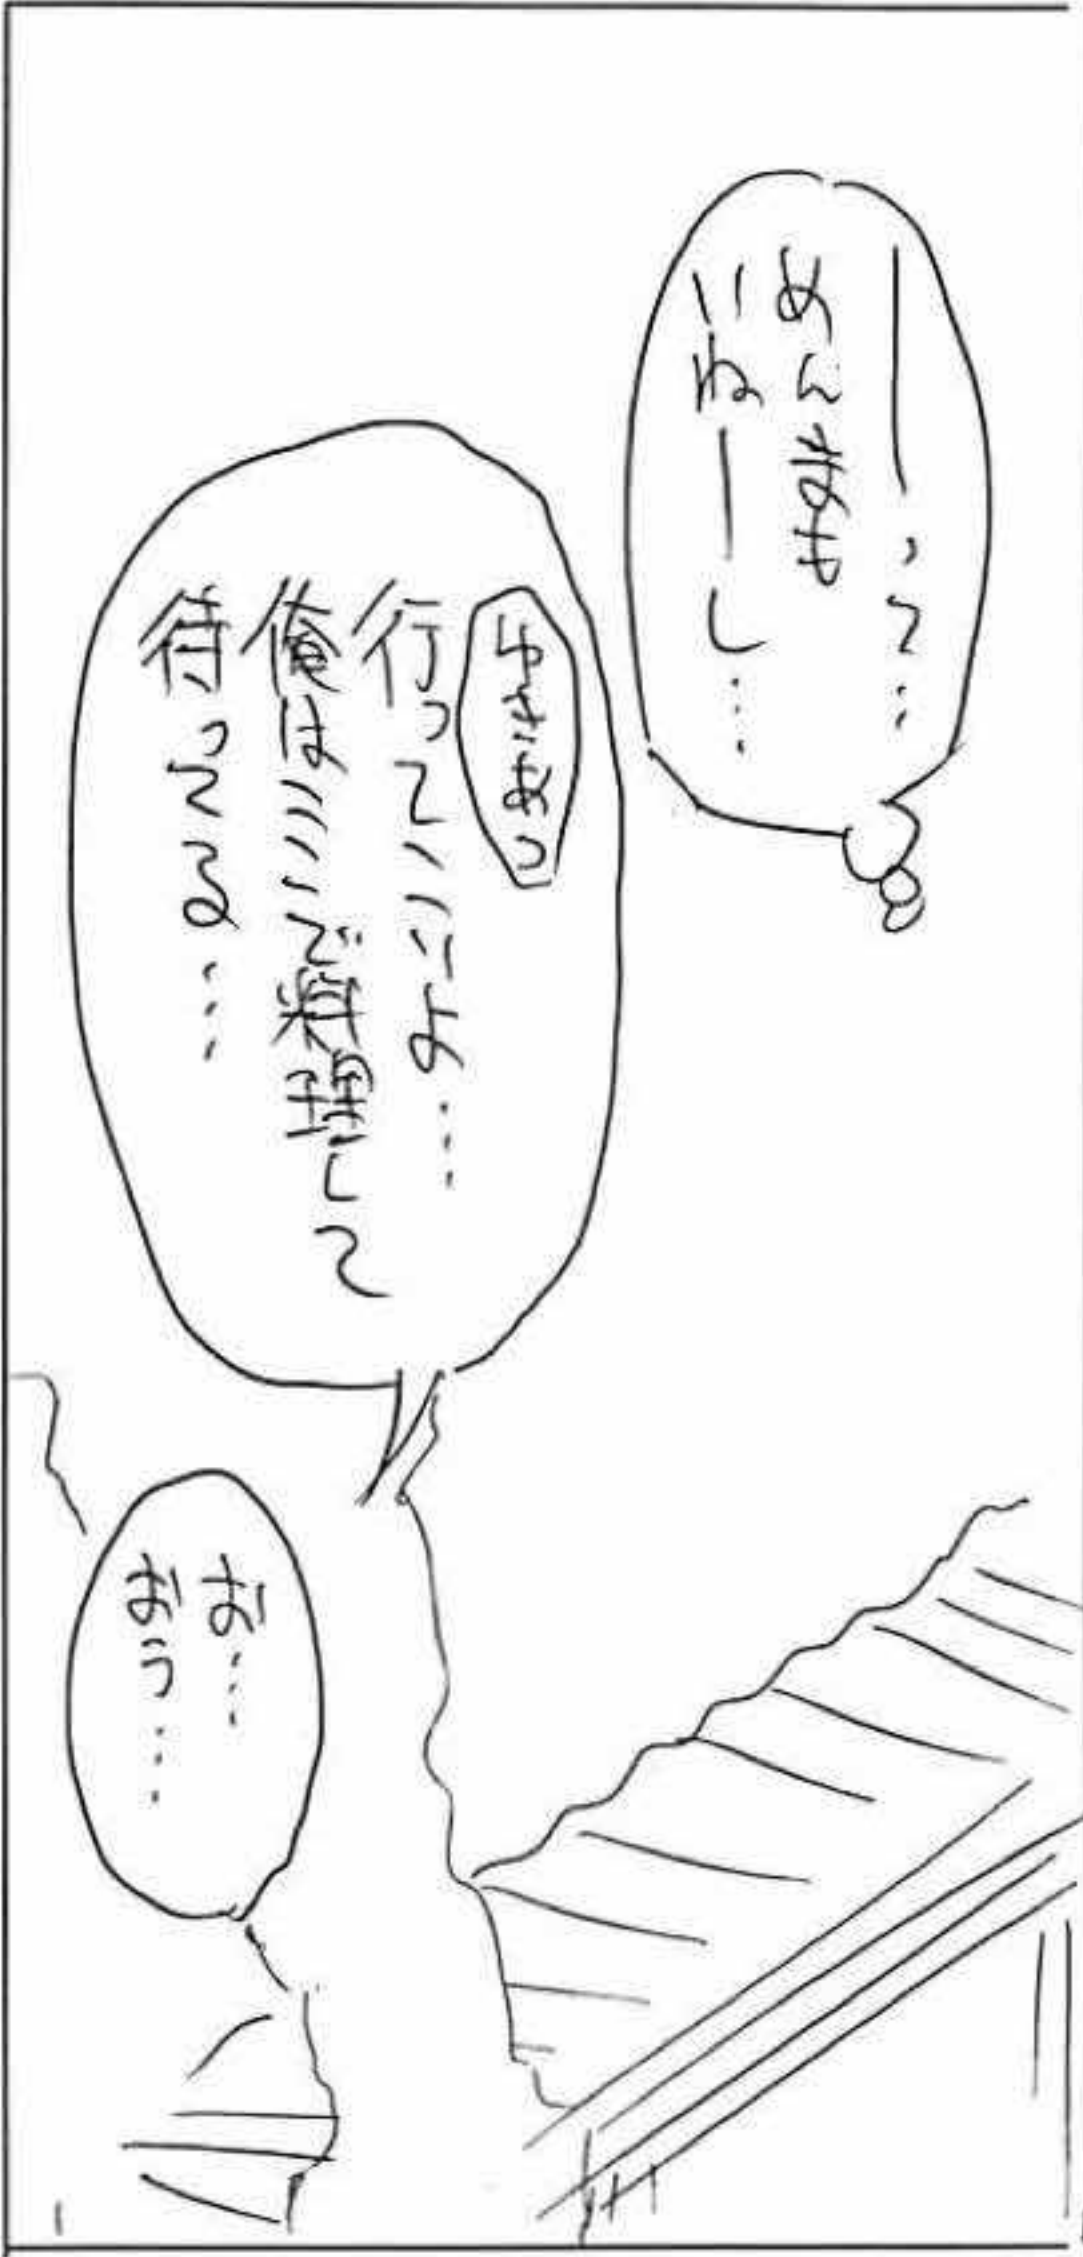 ――って…
めんま
いねーし…
ゆきあつ
行ってこいよ…
俺はここで料理して
待ってる…
お…
おう…